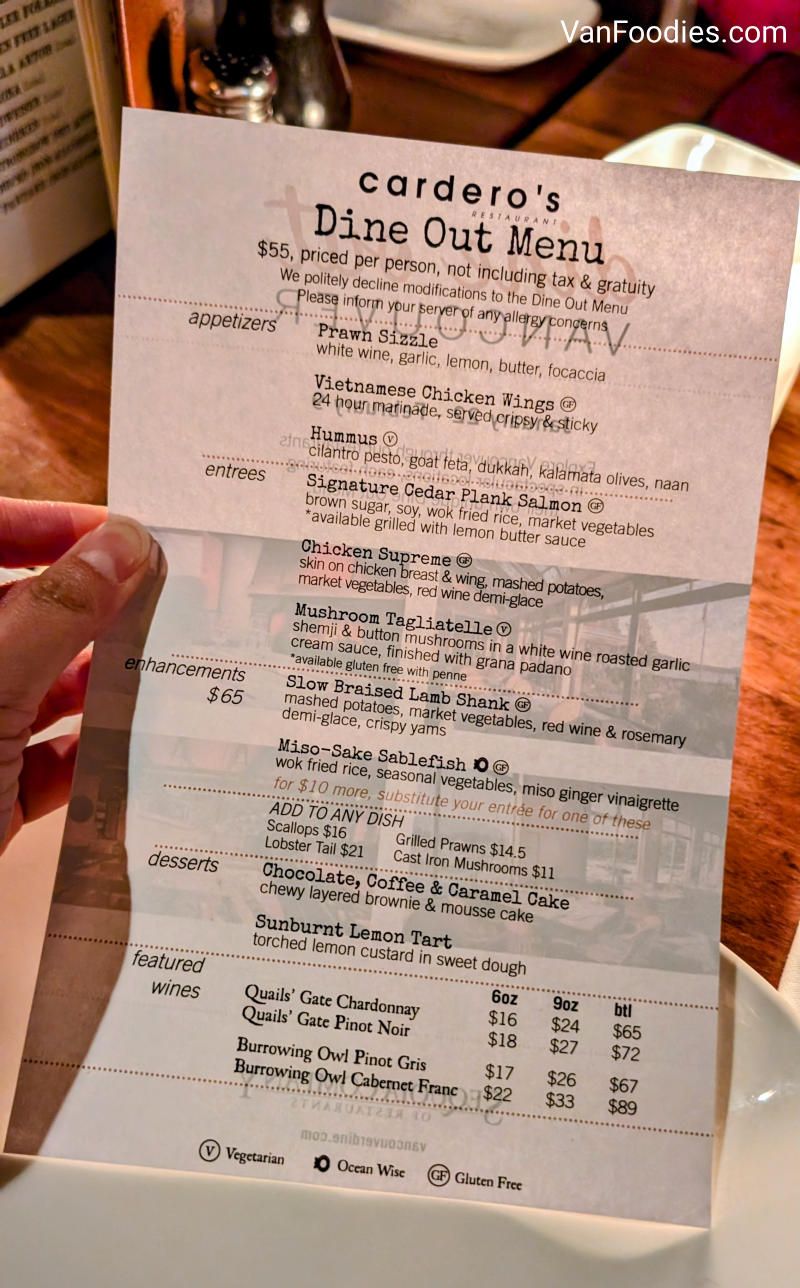 VanFoodies.com
cardero's
RESTAURANT
Dine Out Menu
$55, priced per person, not including tax & gratuity
We politely decline modifications to the Dine Out Menu
Please inform your server of any allergy concerns
appetizers
Prawn Sizzle
white wine, garlic, lemon, butter, focaccia
Vietnamese Chicken Wings GF
24 hour marinade, served cripsy & sticky
Hummus V
cilantro pesto, goat feta, dukkah, kalamata olives, naan
entrees
Signature Cedar Plank Salmon GF
brown sugar, soy, wok fried rice, market vegetables
*available grilled with lemon butter sauce
Chicken Supreme GF
skin on chicken breast & wing, mashed potatoes,
market vegetables, red wine demi-glace
Mushroom Tagliatelle V
shemji & button mushrooms in a white wine roasted garlic
cream sauce, finished with grana padano
*available gluten free with penne
enhancements
$65
Slow Braised Lamb Shank GF
mashed potatoes, market vegetables, red wine & rosemary
demi-glace, crispy yams
Miso-Sake Sablefish GF
wok fried rice, seasonal vegetables, miso ginger vinaigrette
for $10 more, substitute your entrée for one of these
ADD TO ANY DISH
Scallops $16 Grilled Prawns $14.5
Lobster Tail $21 Cast Iron Mushrooms $11
desserts
Chocolate, Coffee & Caramel Cake
chewy layered brownie & mousse cake
Sunburnt Lemon Tart
torched lemon custard in sweet dough
featured
wines
6oz 9oz btl
Quails' Gate Chardonnay $16 $24 $65
Quails' Gate Pinot Noir $18 $27 $72
Burrowing Owl Pinot Gris $17 $26 $67
Burrowing Owl Cabernet Franc $22 $33 $89
VANCOUVER
OF RESTAURANTS
vancouverdine.com
V Vegetarian Ocean Wise GF Gluten Free